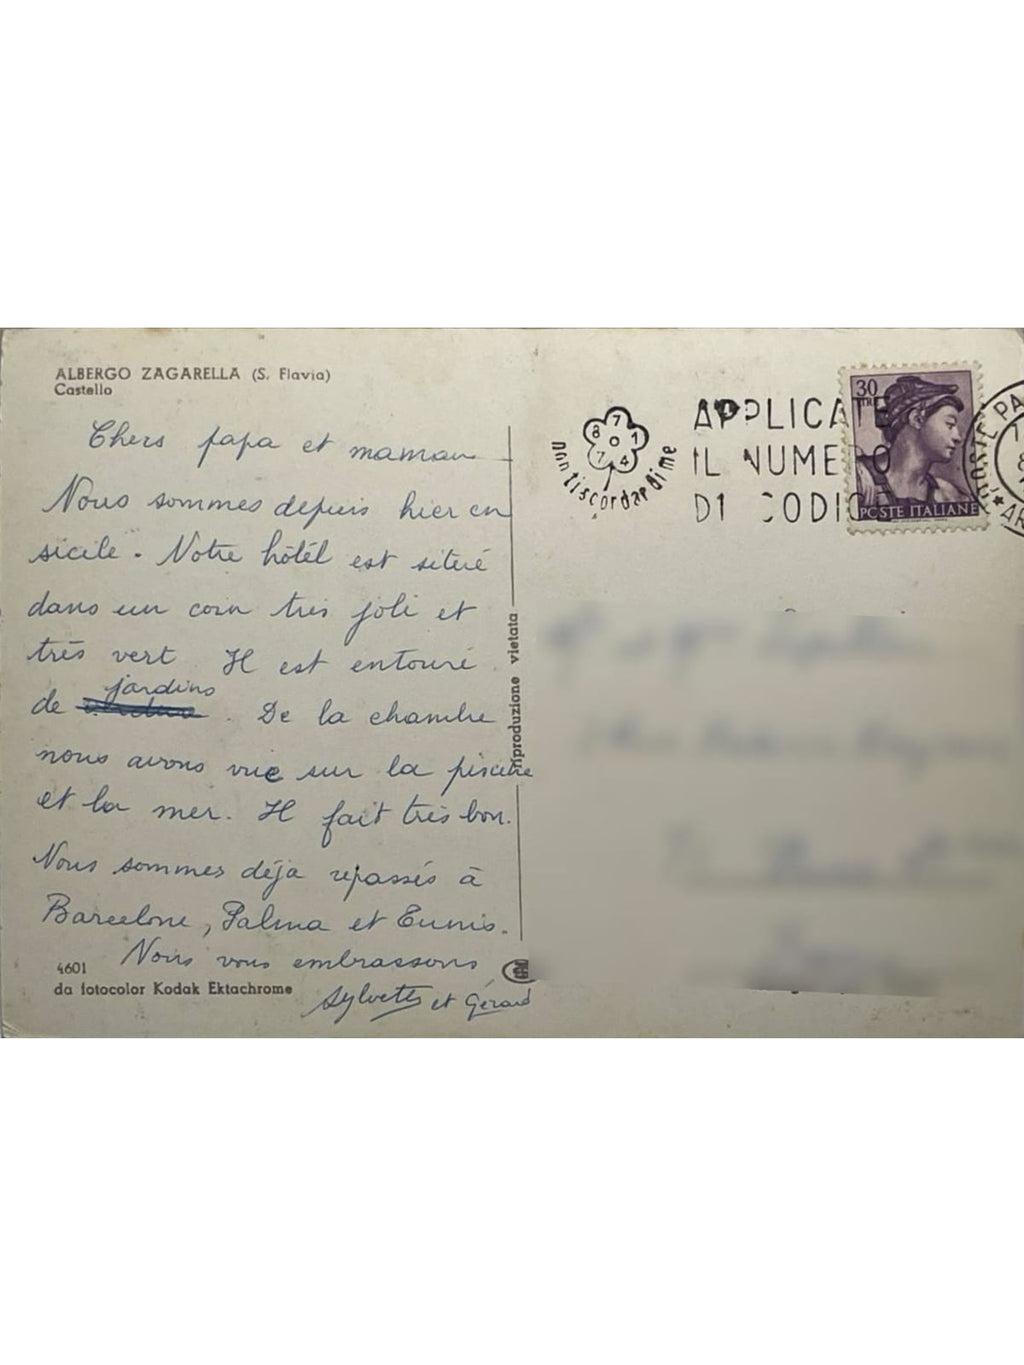 ALBERGO ZAGARELLA (S. Flavia)
Castello
Chers papa et maman
Nous sommes depuis hier en
sicile. Notre hôtel est situé
dans un coin très joli et
très vert Il est entouré
jardins
de
. De la chambre
nous avons vue sur la piscine
et la mer. Il fait très bon.
Nous sommes déja repassés à
Barcelone, Palma et Tunis.
Nous vous embrassons
Sylvette et Gérard
4601
da fotocolor Kodak Ektachrome
riproduzione vietata
8 7 1 0 7 4
non ti scordar di me
APPLICATE
IL NUMERO
DI CODICE
30
LIRE
POSTE ITALIANE